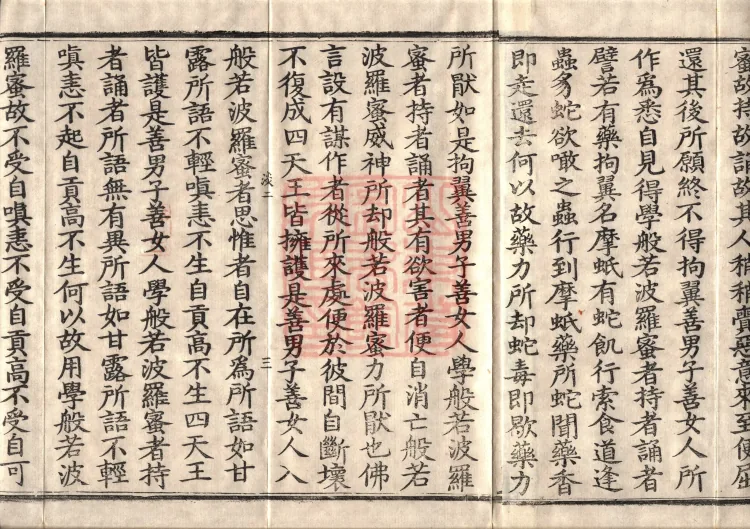 蜜故持故誦故其人種種聲惡意來至便屈
還其後所願終不得拘翼善男子善女人所
作爲悉自見得學般若波羅蜜者持者誦者
譬若有藥拘翼名摩蚔有蛇飢行索食道逢
蟲多蛇欲噉之蟲行到摩蚔藥所蛇聞藥香
即走還去何以故藥力所却蛇毒即歇藥力
所猒如是拘翼善男子善女人學般若波羅
蜜者持者誦者其有欲害者便自消亡般若
波羅蜜威神所却般若波羅蜜力所猒也佛
言設有謀作者從所來處便於彼間自斷壞
不復成四天王皆擁護是善男子善女人入
淡二 三
般若波羅蜜者思惟者自在所爲所語如甘
露所語不輕嗔恚不生自貢高不生四天王
皆護是善男子善女人學般若波羅蜜者持
者誦者所語無有異所語如甘露所語不輕
嗔恚不起自貢高不生何以故用學般若波
羅蜜故不受自嗔恚不受自貢高不受自可